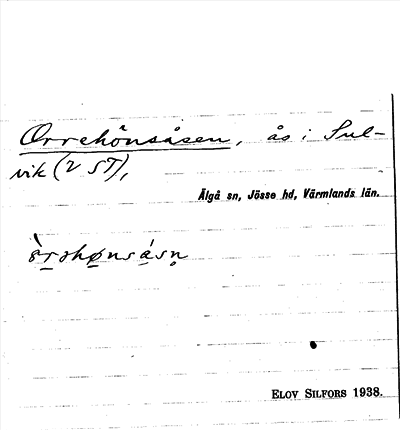 Orrehönsåsen, ås i Sul-
vik (2 ST),
Älgå sn, Jösse hd, Värmlands län.
ELOV SILFORS 1938.